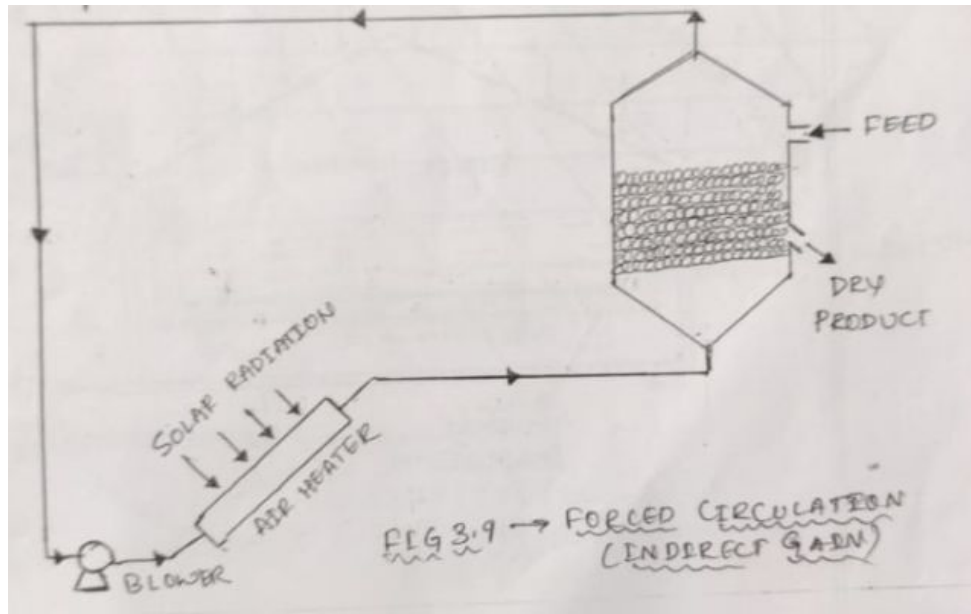 FEED
DRY
PRODUCT
SOLAR RADIATION
AIR HEATER
BLOWER
FIG 3.9 → FORCED CIRCULATION
(INDIRECT GAIN)